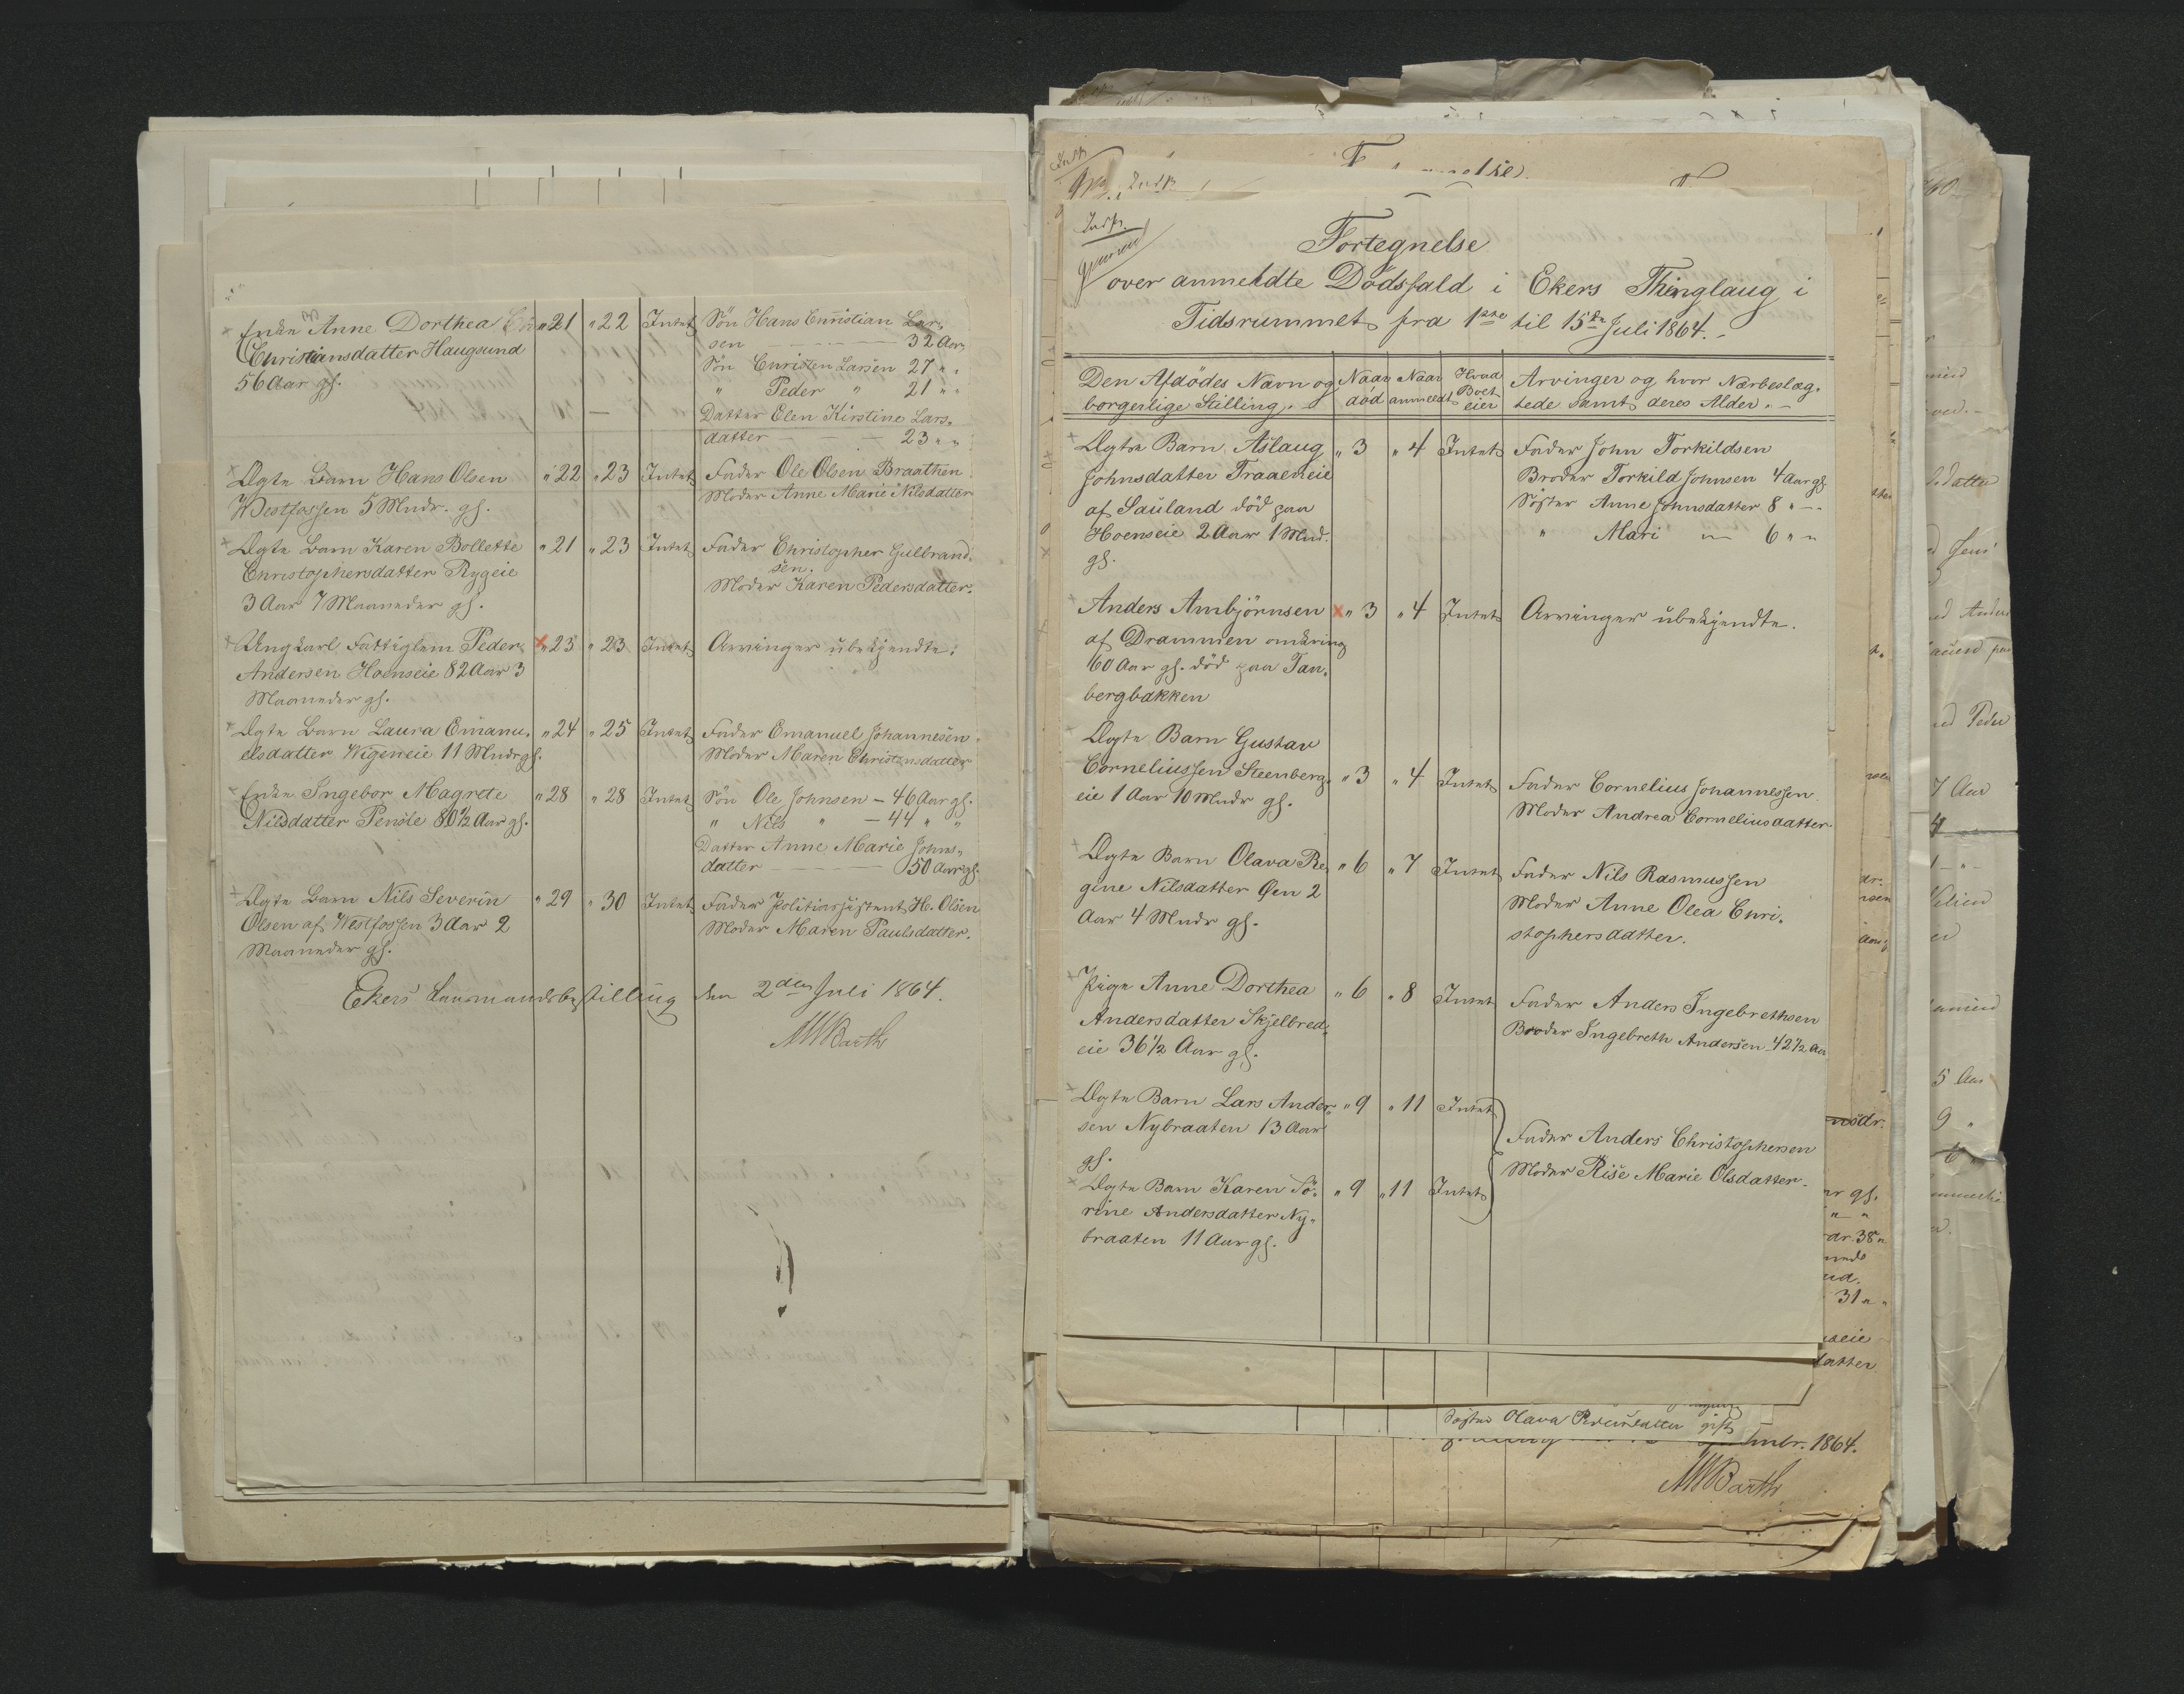 Enke Anne Dorthea "21 "22 Intet Søn Hans Christian Lar-
Christiansdatter Haugsund sen 32 Aar
56 Aar gl. Søn Christen Larsen 27 " "
" Peder " 21 " "
Datter Elen Kirstine Lars-
datter 23 " "
Ægte Barn Hans Olsen "22 "23 Intet Fader Ole Olsen Braathen
Westfossen 5 Mndr. gl. Moder Anne Marie Nilsdatter
Ægte Barn Karen Bollette "21 "23 Intet Fader Christopher Gulbrand-
Christophersdatter Rygeie sen.
3 Aar 7 Maaneder gl. Moder Karen Pedersdatter.
Ungkarl, Fattiglem Peder "23 "23 Intet Arvinger übekjendte.
Andersen Hoenseie 82 Aar 3
Maaneder gl.
Ægte Barn Laura Emanu- "24 "25 Intet Fader Emanuel Johannesen
elsdatter Wigeneie 11 Mndr gl. Moder Maren Christensdatter
Enke Ingebor Magrete "28 "28 Intet Søn Ole Johnsen - 46 Aar gl.
Nilsdatter 80½ Aar gl. " Nils " - 44 " "
Datter Anne Marie Johns-
datter 50 Aar gl.
Ægte Barn Nils Severin "29 "30 Intet Fader Politiassistent H. Olsen
Olsen af Westfossen 3 Aar 2 Moder Maren Paulsdatter.
Maaneder gl.
Ekers Lensmandsbestilling den 2den Juli 1864.
MWBarth
Fortegnelse
over anmeldte Dødsfald i Ekers Thinglaug i
Tidsrummet fra 1ste til 15de Juli 1864.-
Den Afdødes Navn og Naar Naar Hvad Arvinger og hvor Nærbeslæg-
borgerlige Stilling.- død anmeldt Boet eier tede samt deres Alder.-
Ægte Barn Aslaug "3 "4 Intet Fader John Torkildsen
Johnsdatter Traaeneie Broder Torkild Johnsen 4 Aar gl.
af Sauland død paa Søster Anne Johnsdatter 8 " -
Hoenseie 2 Aar 1 Mnd. " Mari " 6 " "
gl.
Anders Arnbjörnsen "3 "4 Intet Arvinger übekjendte.
af Drammen omkring
60 Aar gl. død paa Tan-
bergbakken
Ægte Barn Gustav
Corneliussen Steenberg- "3 "4 Intet Fader Cornelius Johannessen
eie 1 Aar 10 Mndr gl. Moder Andrea Corneliusdatter.
Ægte Barn Olava Re- "6 "7 Intet Fader Nils Rasmussen
gine Nilsdatter Øen 2 Moder Anne Olea Chri-
Aar 4 Mndr gl. stophersdatter.
Pige Anne Dorthea "6 "8 Intet Fader Anders Ingebrethsen
Andersdatter Skjelbred- Broder Ingebreth Andersen 42½ Aar
eie 36½ Aar gl.
Ægte Barn Lars Ander- "9 "11 Intet
sen Nybraaten 13 Aar Fader Anders Christophersen
gl. Moder Rise Marie Olsdatter.
Ægte Barn Karen Sö- "9 "11 Intet
rine Andersdatter Ny-
braaten 11 Aar gl.
Søster Olava gift
1864.
MWBarth